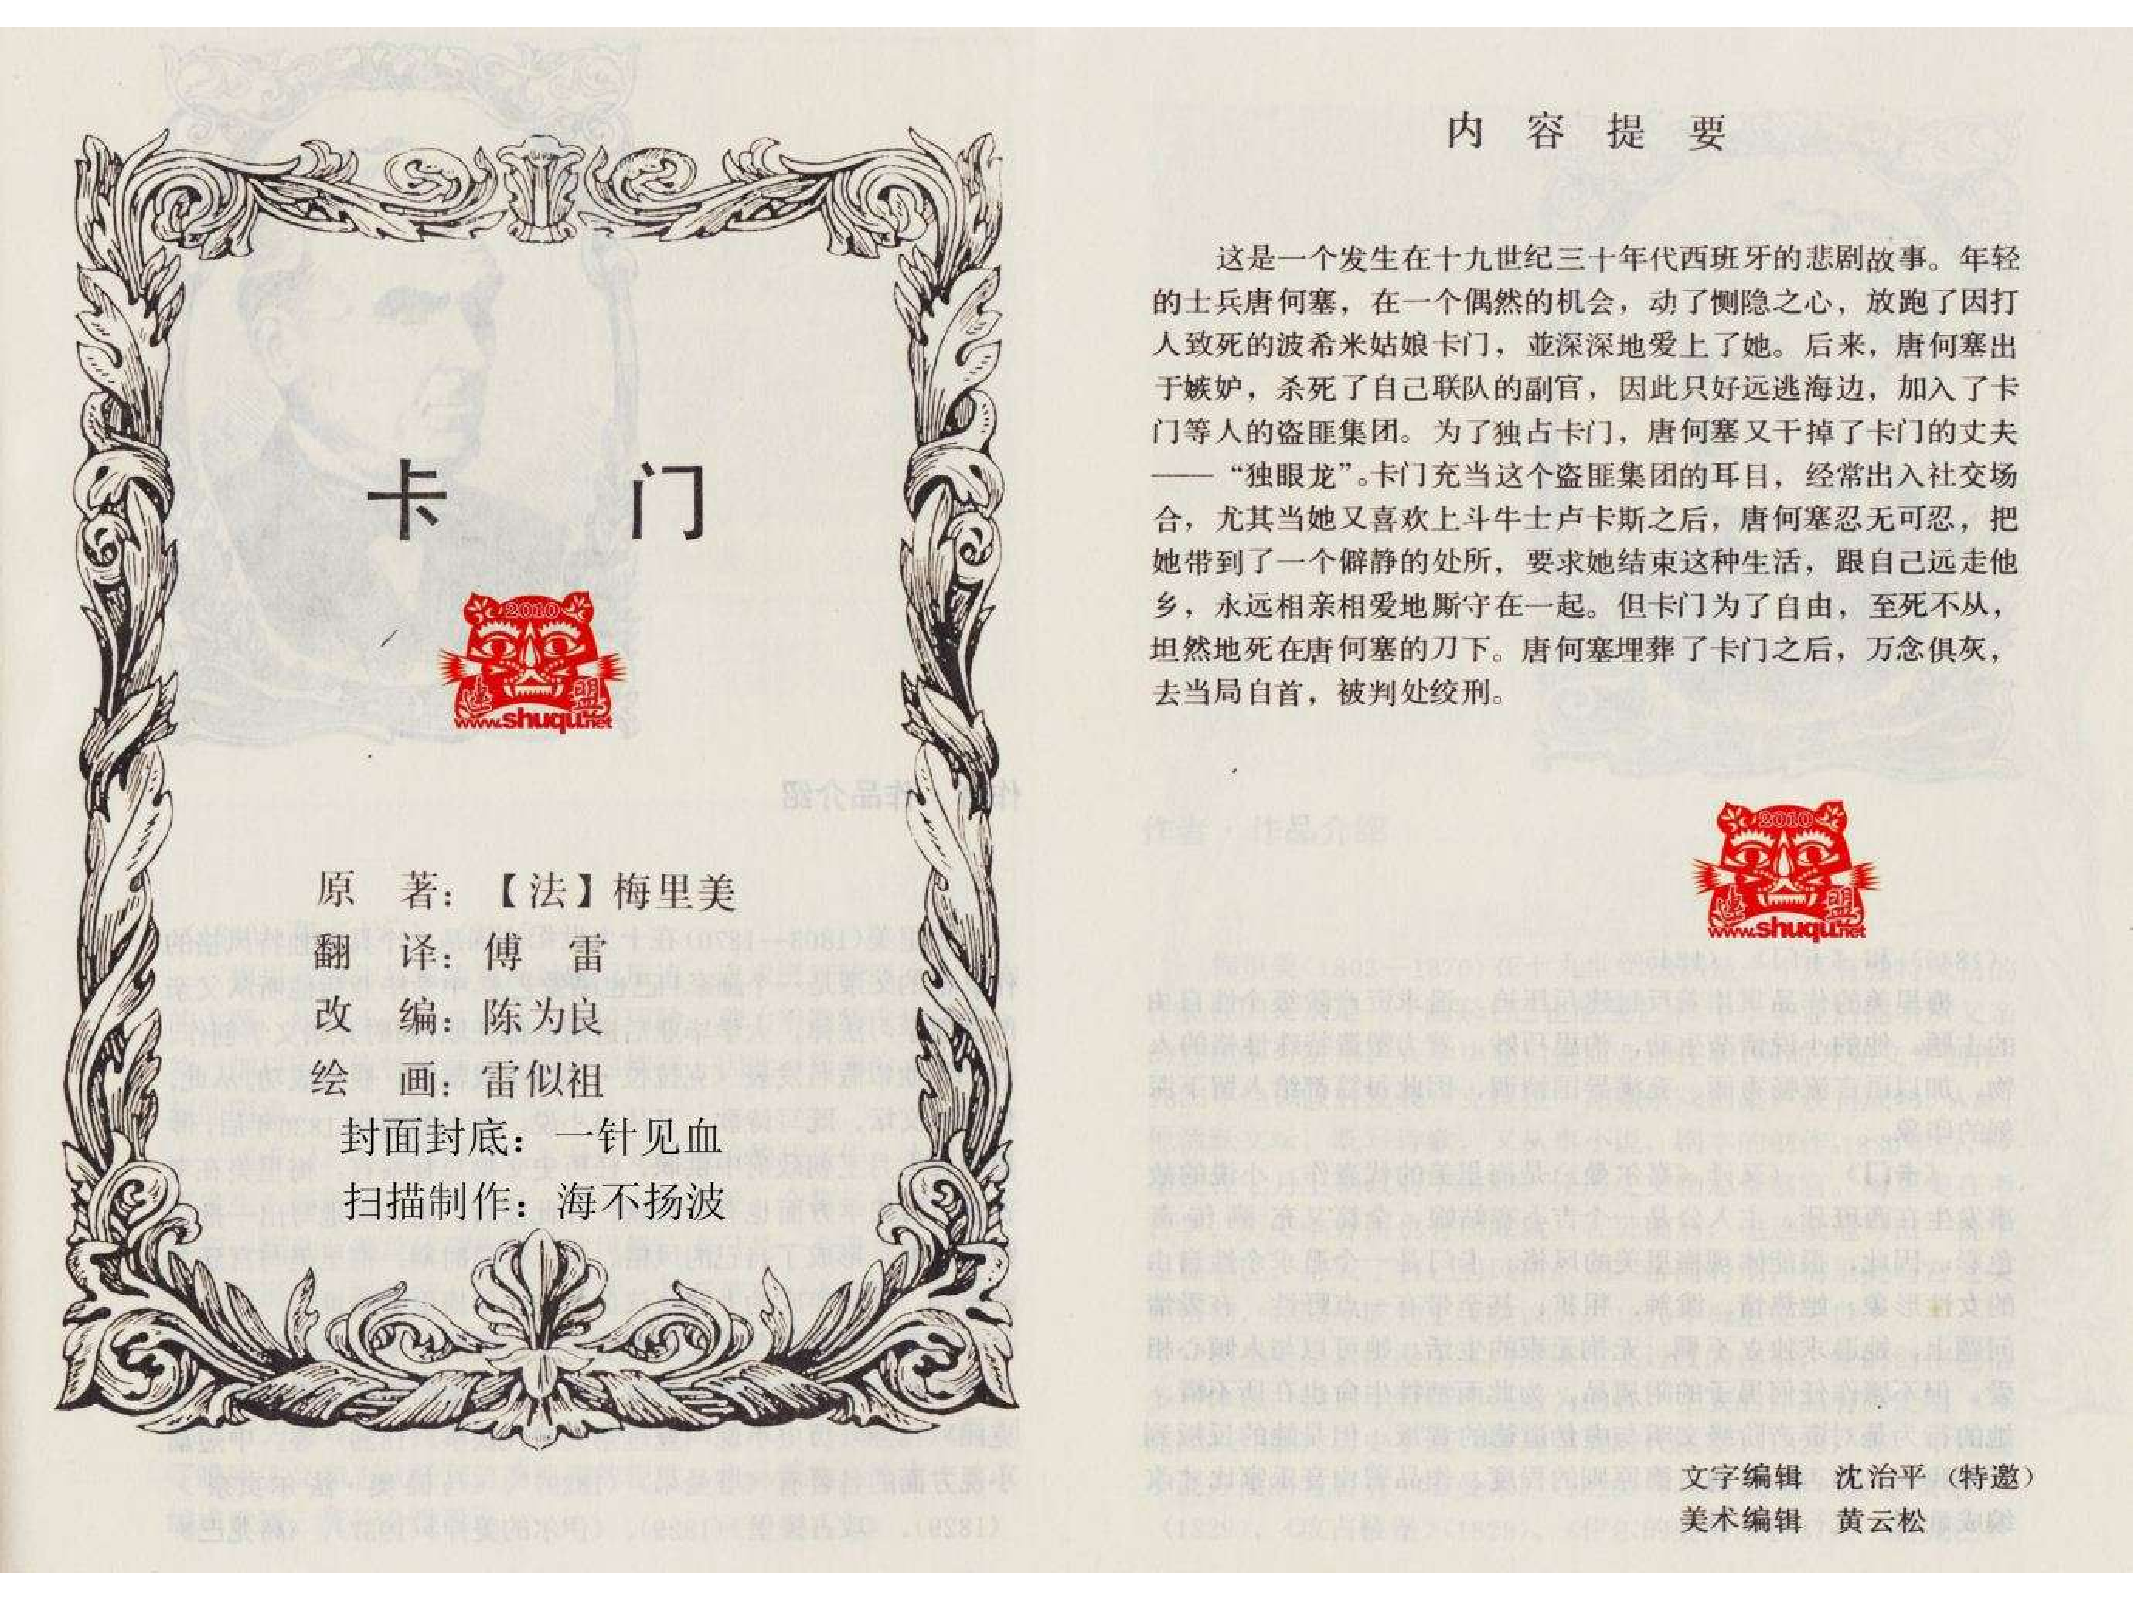 卡 门
2010
www.shuqu.net
原 著：【法】梅里美
翻 译：傅 雷
改 编：陈为良
绘 画：雷似祖
封面封底：一针见血
扫描制作：海不扬波
内 容 提 要
这是一个发生在十九世纪三十年代西班牙的悲剧故事。年轻
的士兵唐何塞，在一个偶然的机会，动了恻隐之心，放跑了因打
人致死的波希米姑娘卡门，並深深地爱上了她。后来，唐何塞出
于嫉妒，杀死了自己联队的副官，因此只好远逃海边，加入了卡
门等人的盗匪集团。为了独占卡门，唐何塞又干掉了卡门的丈夫
——“独眼龙”。卡门充当这个盗匪集团的耳目，经常出入社交场
合，尤其当她又喜欢上斗牛士卢卡斯之后，唐何塞忍无可忍，把
她带到了一个僻静的处所，要求她结束这种生活，跟自己远走他
乡，永远相亲相爱地厮守在一起。但卡门为了自由，至死不从，
坦然地死在唐何塞的刀下。唐何塞埋葬了卡门之后，万念俱灰，
去当局自首，被判处绞刑。
2010
盟
www.shuqu.net
文字编辑 沈治平（特邀）
美术编辑 黄云松